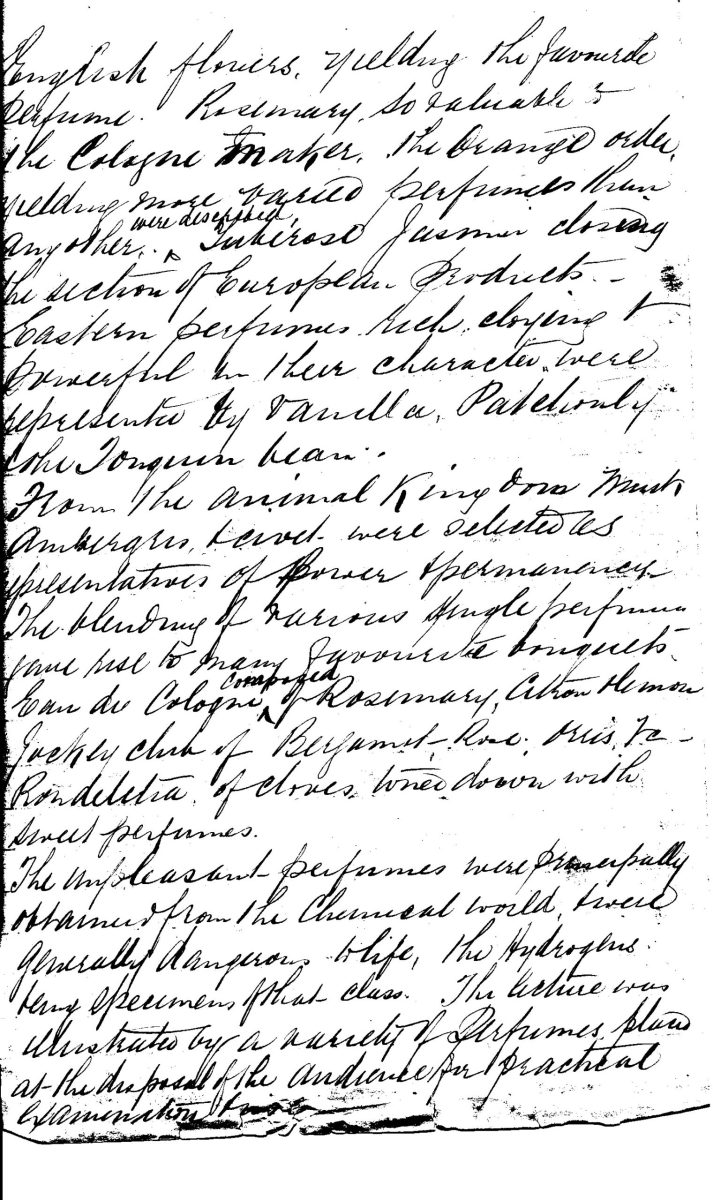 English flowers, yielding the favourite
perfume. Rosemary, so valuable to
the Cologne Maker. The Orange order,
yielding more varied perfumes than
any other, were described, Tuberose Jasmin closing
the section of European Products. -
Eastern perfumes rich, cloying &
powerful in their character, were
represented by Vanilla, Patchouly
& the Tonquin bean.
From the animal Kingdom Musk
Ambergris, & civet were selected as
representatives of Power & permanency
The blending of various single perfumes
gave rise to many favourite bouquets.
Eau de Cologne, composed of Rosemary, Citron & lemon
Jockey club of Bergamot - Rose, Orris, &c -
Rondeletia of cloves toned down with
sweet perfumes.
The unpleasant perfumes were principally
obtained from the Chemical world, & were
generally dangerous to life, the Hydrogens
being specimens of that class. The lecture was
illustrated by a variety of Perfumes placed
at the disposal of the audience for practical
examination